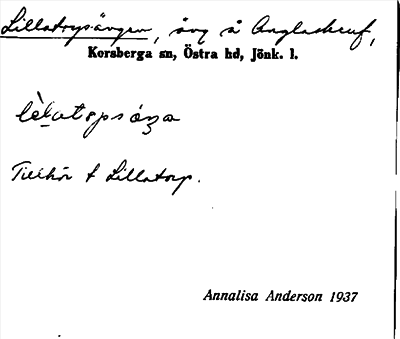 Lillatorpsängen, äng å Anglaskruf,
Korsberga sn, Östra hd, Jönk. l.
Tillhör † Lillatorp.
Annalisa Anderson 1937